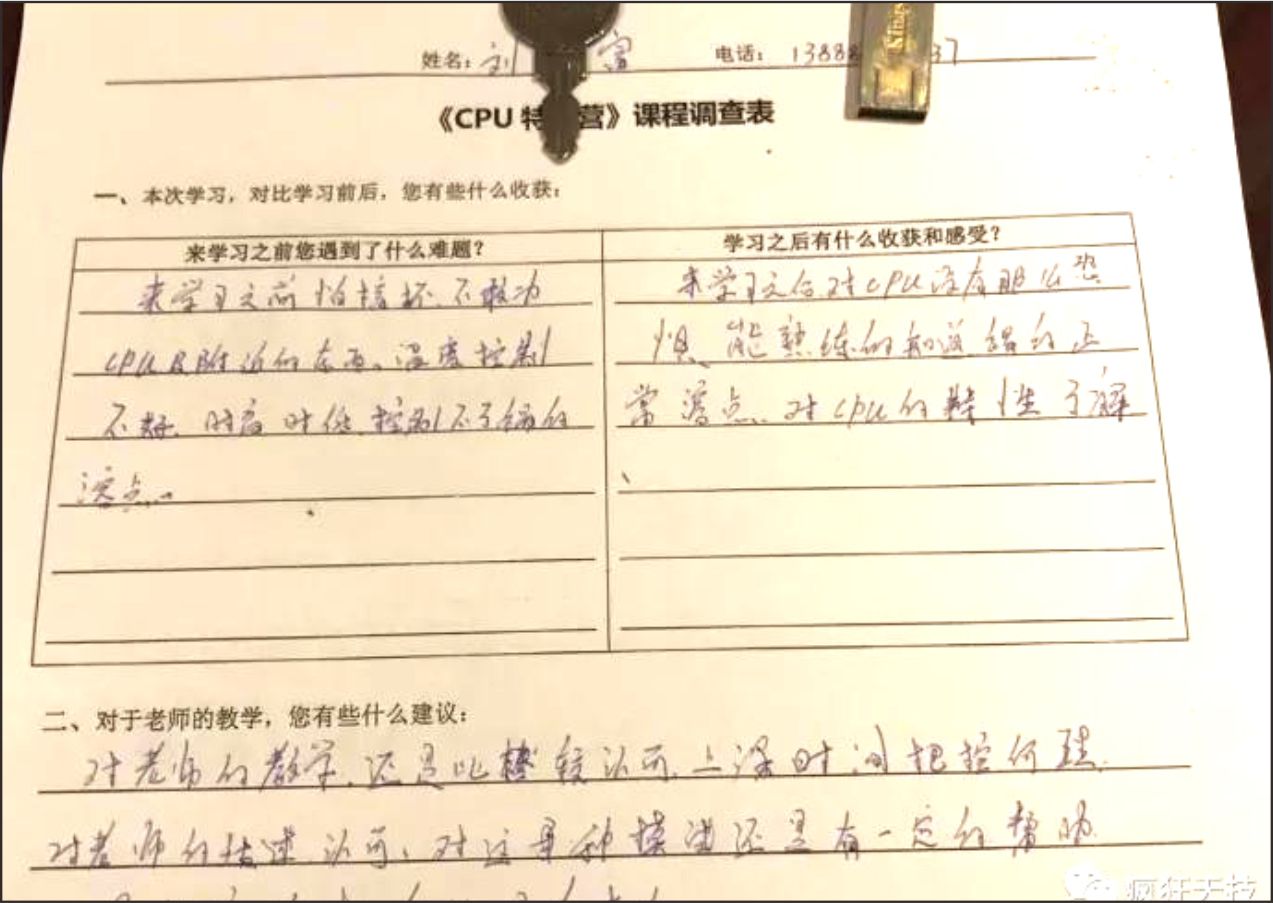 姓名：刘 富 电话：13888 37
《CPU 特 营》课程调查表
一、本次学习，对比学习前后，您有些什么收获：
来学习之前您遇到了什么难题？
来学习之前怕搞坏.不敢动
CPU及附近的东西、温度控制
不好.时高时低.控制不了锡的
溶点.
学习之后有什么收获和感受？
来学习之后.对CPU没有那么恐
惧、能熟练的知道锡的正
常溶点.对CPU的特性了解
、
二、对于老师的教学，您有些什么建议：
对老师的教学.还是比较认可.上课时间把控
对老师的技术认可、对这种模 还是有一定的帮助.
Kings